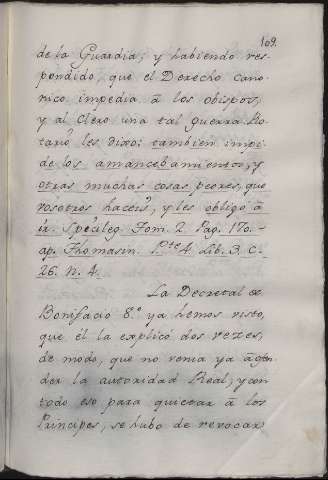 109.
de la Guardia; y habiendo res-
pondido, que el Derecho cano-
nico impedia â los obispos,
y al Clero una tal guerra. Clo-
tario les dixo: tambien impi-
de los amancebamientos, y
otras muchas cosas peores, que
vosotros haceis, y les obligó â
ir. Specileg. Tom. 2. Pag. 170. -
ap. Thomasin. P.te 4. Lib. 3. C.
26. N. 4.
La Decretal de
Bonifacio 8.º ya hemos visto,
que él la explicó dos vezes,
de modo, que no venia ya â
der la autoridad Real; y con
todo eso para quietar â los
Principes, se hubo de revocar